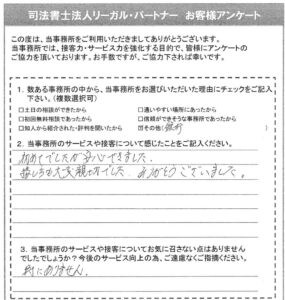 司法書士法人リーガル・パートナー　お客様アンケート
この度は、当事務所をご利用いただきましてありがとうございます。
当事務所では、接客力・サービス力を強化する目的で、皆様にアンケートの
ご協力を頂いております。お手数ですが、ご協力下されば幸いです。
1．数ある事務所の中から、当事務所をお選びいただいた理由にチェックをご記入
下さい。（複数選択可）
□土日の相談ができたから　□通いやすい場所にあったから
□初回無料相談であったから　□信頼ができそうな事務所であったから
□知人から紹介された・評判を聞いたから　☑その他（銀行　）
2．当事務所のサービスや接客について感じたことをご記入ください。
初めてでしたが安心できました。
とても大変親切でした。ありがとうございました。
3．当事務所のサービスや接客についてお気に召さない点はありません
でしたでしょうか？今後のサービス向上の為、ご遠慮なくご指摘ください。
特にありません。